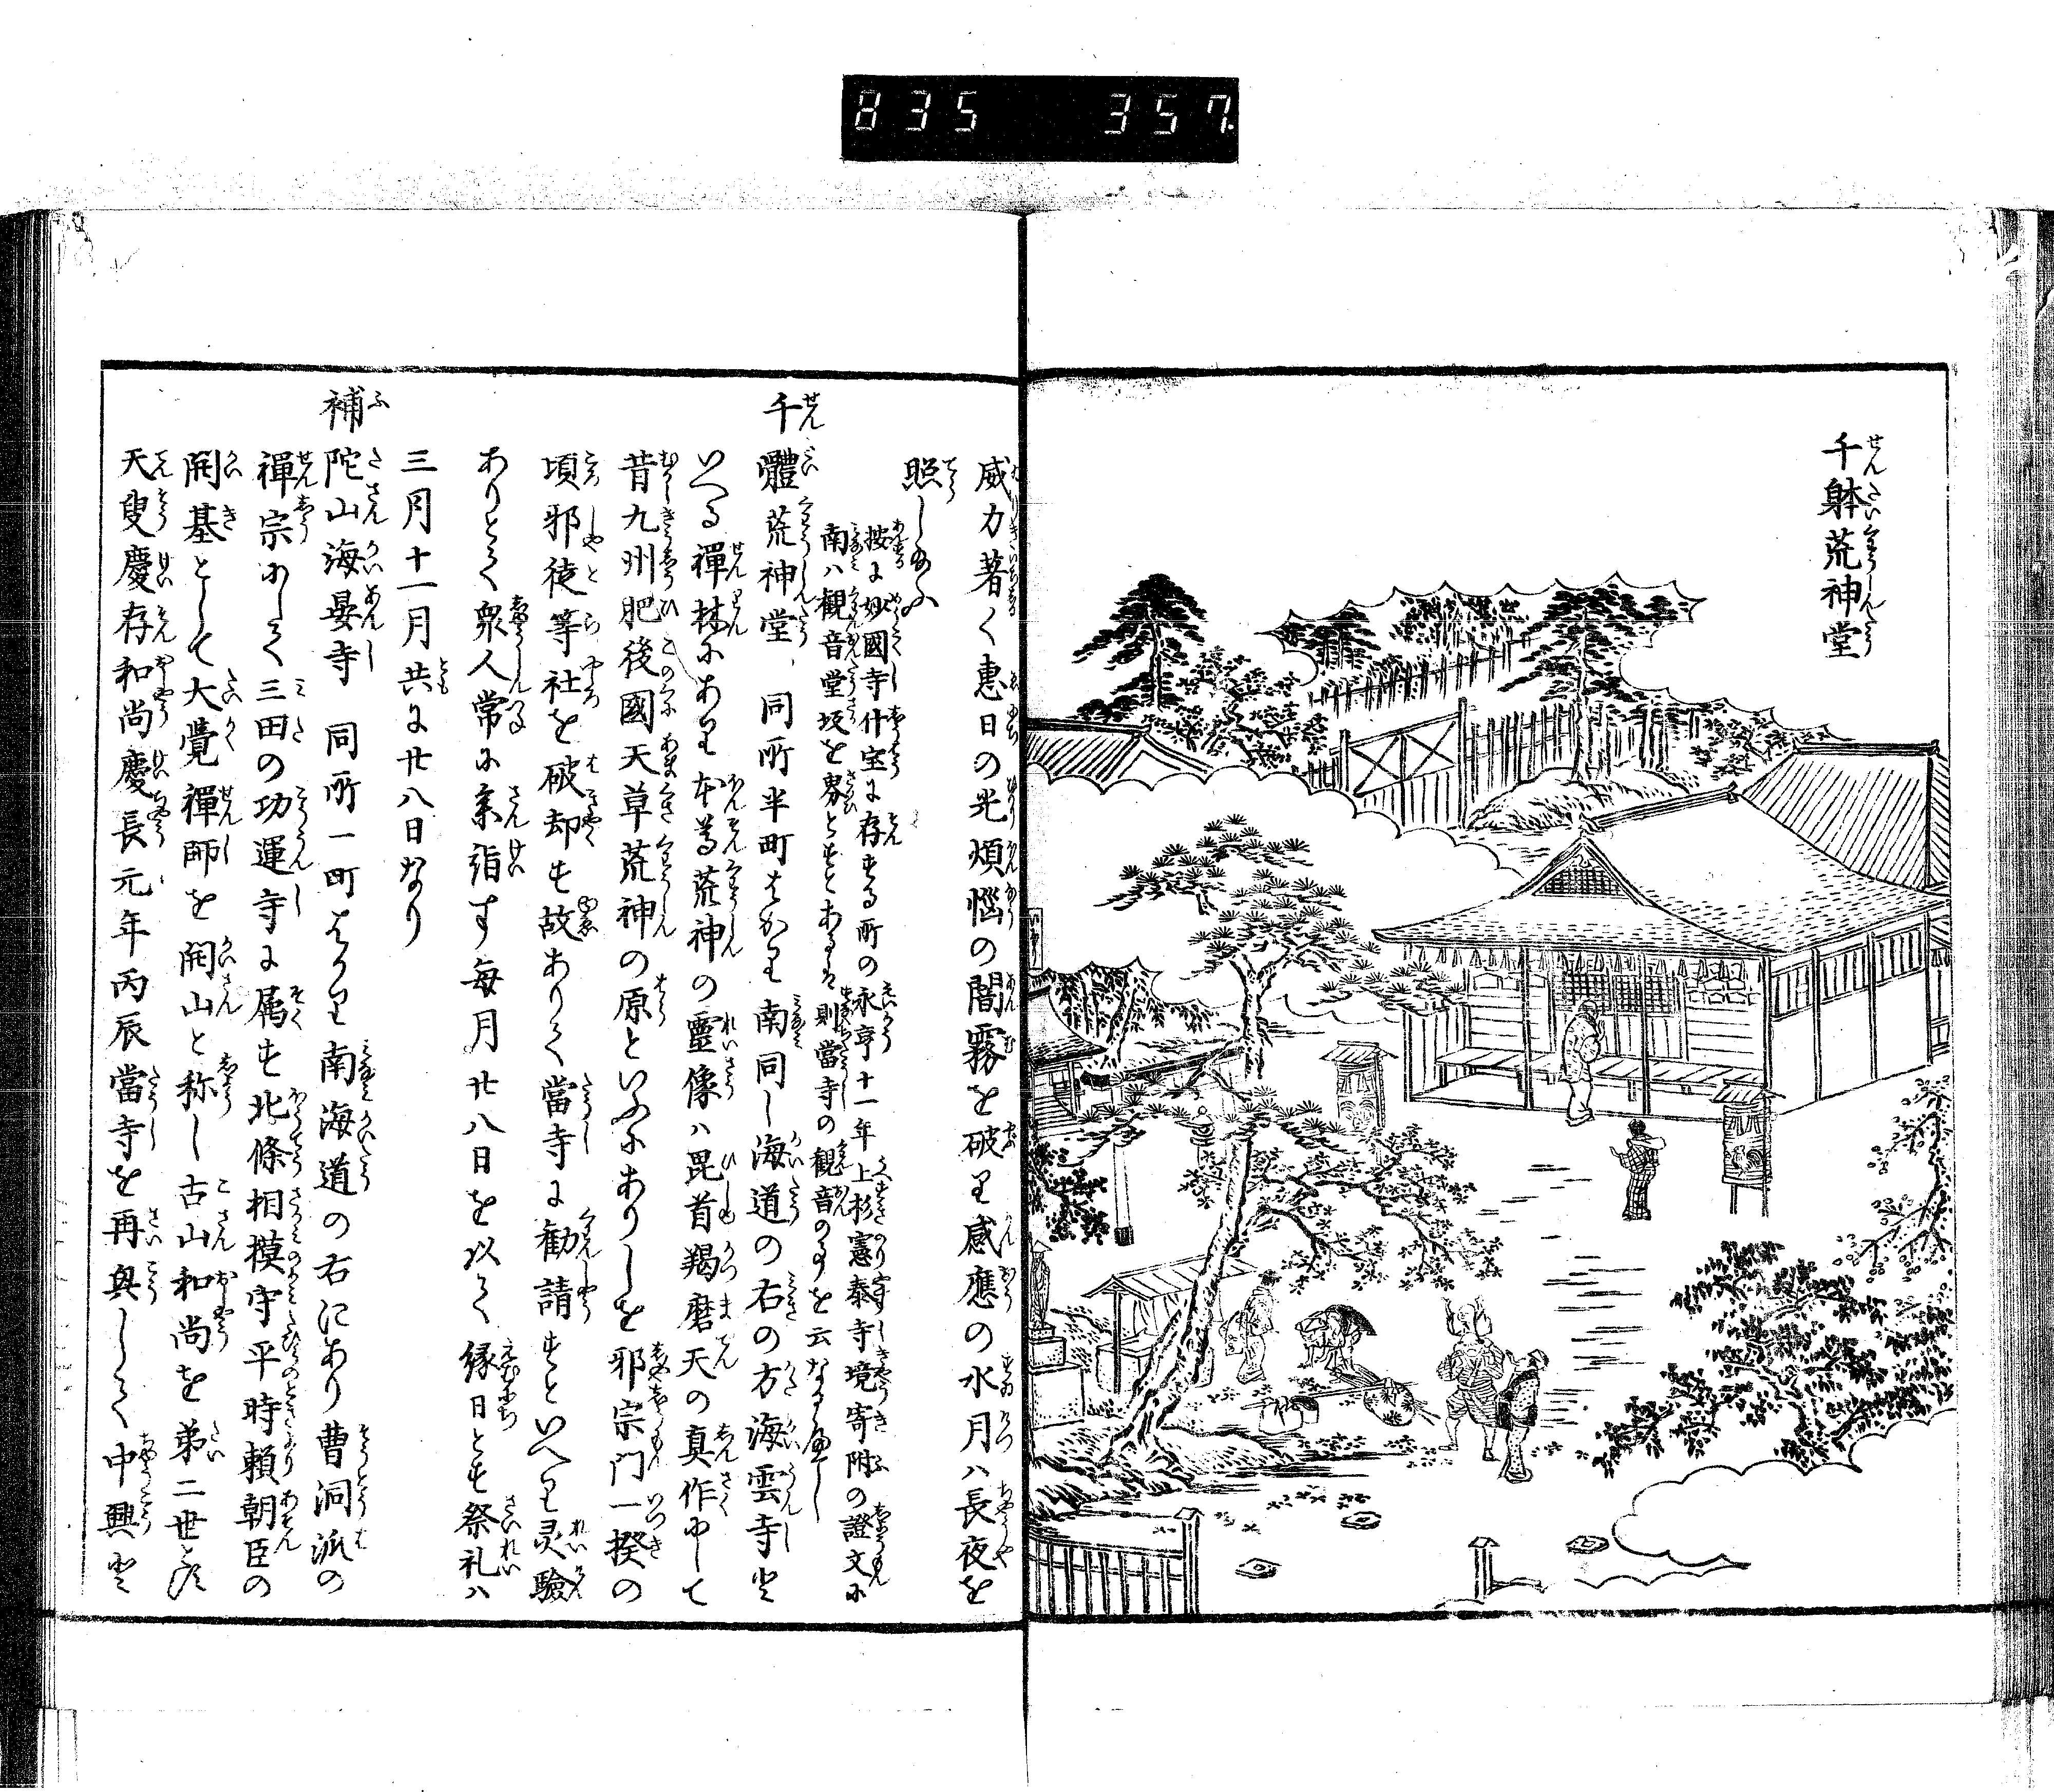 835 357
千躰荒神堂
威力著く惠日の光煩惱の闇霧を破り感應の水月ハ長夜を
照し給ふ
按に妙國寺什宝に存する所の永享十一年上杉憲泰寺境寄附の證文に
南ハ観音堂坂を界とすとあるハ則當寺の観音の事を云なるへし
千體荒神堂 同所半町はかり南同し海道の右の方海雲寺と
いへる禪林にあり本尊荒神の靈像ハ毘首羯磨天の真作にして
昔九州肥後國天草荒神の原といふにありしを邪宗門一揆の
頃邪徒等社を破却す故ありて當寺に勧請すといへり灵驗
ありとて衆人常に参詣す毎月廿八日を以て縁日とす祭礼ハ
三月十一月共に廿八日なり
補陀山海晏寺 同所一町はかり南海道の右にあり曹洞派の
禪宗にして三田の功運寺に属す北條相摸守平時頼朝臣の
開基として大覺禪師を開山と称し古山和尚を第二世とす
天叟慶存和尚慶長元年丙辰當寺を再興して中興と